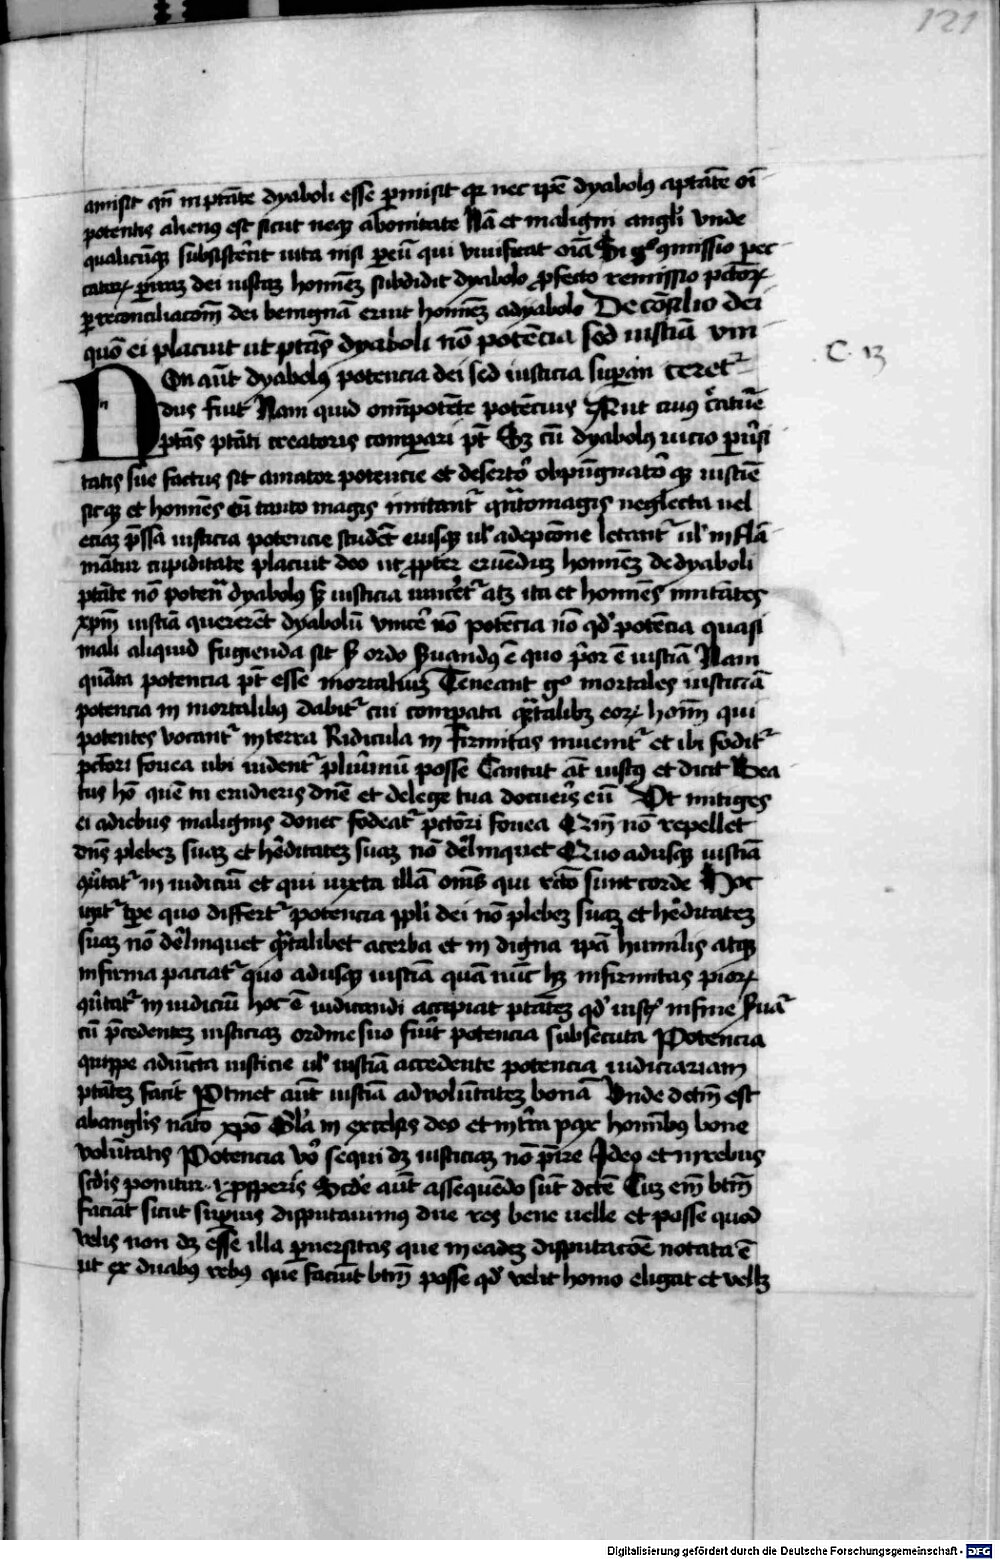 121
amisit qn̄ in ptāte dyaboli esse ꝑmisit qꝛ nec ip̄e dyabolꝯ a ptāte oī
potentis alienꝯ est sicut neqꝫ a bonitate Nā et maligni angli vnde
qualicūqꝫ subsisterēt uita nisi ꝑ eū qui viuificat oīa Si gͦ ꝯmissio pec
catoꝝ ꝑ iraꝫ dei iustaꝫ hoīneꝫ subdidit dyabolo ꝓfecto remissio pctōꝝ
ꝑ reconciliacōm̄ dei benignā eruit hoīneꝫ a dyabolo De cōsilio dei
quō ei placuit ut ptās dyaboli nō potēcia sed iustiā vin
C. 13
Non aūt dyabolꝯ potencia dei sed iusticia supan ceretᷣ
dus fuit Nam quid omīpotēte potēcius Aut cuiꝯ c̄atūe
ptās ptāti creatoris compari pt̄ Sꝫ cū dyabolꝯ uicio ꝑuˀsi
tatis sue factus sit amator potencie et desertoˀ obpūgnatoˀ qꝫ iustiē
sic qꝫ et hoīnes eū tanto magis imitantᷣ qntomagis neglecta uel
eciaꝫ ꝑossa iusticia potencie studēt eiusqꝫ ulˀ adepcōne letantᷣ ulˀ inflā
mātur cupiditate placuit deo ut ꝓpter eruēduꝫ hoīneꝫ de dyaboli
ptāte nō potenᷓ dyabolus sꝫ iusticia uinceretᷣ atqꝫ ita et hoīnes imitātes
xp̄m iustiā quererēt dyabolū vincˀe nō potēcia nō qdˀ potēcia quasi
mali aliquid fugienda sit sꝫ ordo suandꝯ ē quo pˀor ē iustiā Nam
quāta potencia pt̄ esse mortaliuꝫ Teneant gͦ mortales iusticiā
potencia in mortalibꝯ dabitᷣ cui compata qntalibꝫ eoꝝ hoīm qui
potentes vocantᷣ in terra Ridicula in firmitas inuenitᷣ et ibi foditᷣ
pctōri fouea ubi uidentᷣ plurimū posse Cantat āt iustꝯ et dicit Bea
tus hō quē tu erudieris dn̄e et de lege tua docueris eū Vt mitiges
ei a diebus malignis donec fodeatᷣ pctōri fouea Qm̄ nō repellet
dn̄s plebeꝫ suaꝫ et hˀeditateꝫ suaꝫ nō dˀelinquet Quo adusqꝫ iustiā
ꝯuˀtatᷣ in iudiciū et qui iuxta illā om̄s qui rcō sunt corde Hoc
igitᷣ tpe quo differtᷣ potencia ppli dei nō plebeꝫ suaꝫ et hˀeditateꝫ
suaꝫ nō dˀelinquet qntalibet acerba et in digna ip̄a humilis atqꝫ
infirma paciatᷣ quo adusqꝫ iustiā quā nūc hꝫ infirmitas pioꝝ
ꝯuˀtatᷣ in iudiciū hoc ē iudicandi accipiat ptāteꝫ qdˀ iustꝭ in fine suaᷣ
cū p̄cedenteꝫ iusticiaꝫ ordine suo fuīt potencia subsecuta Potencia
quippe adiūcta iusticie ulˀ iustiā accedente potencia iudiciariam
ptāteꝫ facit Ptinet aūt iustiā ad volūtateꝫ bonā Vnde dctm̄ est
ab anglis nato xpō Glˀa in excelsis deo et in tˀra pax hoīnibꝯ bone
volūtatis Potencia vˀo sequi dꝫ iusticiaꝫ nō pˀire Ideo et in rebus
scdis ponitur .i. ꝓsperis Scde aūt a sequēdo sūt dcte Cuꝫ em̄ btm̄
faciāt sicut supius disputauimꝯ due res bene uelle et posse quod
velis non dꝫ esse illa ꝑuersitas que in eadeꝫ disputacōe notata ē
ut ex duabꝯ rebꝯ que faciūt btm̄ posse qdˀ velit homo eligat et velle
Digitalisierung gefördert durch die Deutsche Forschungsgemeinschaft - DFG